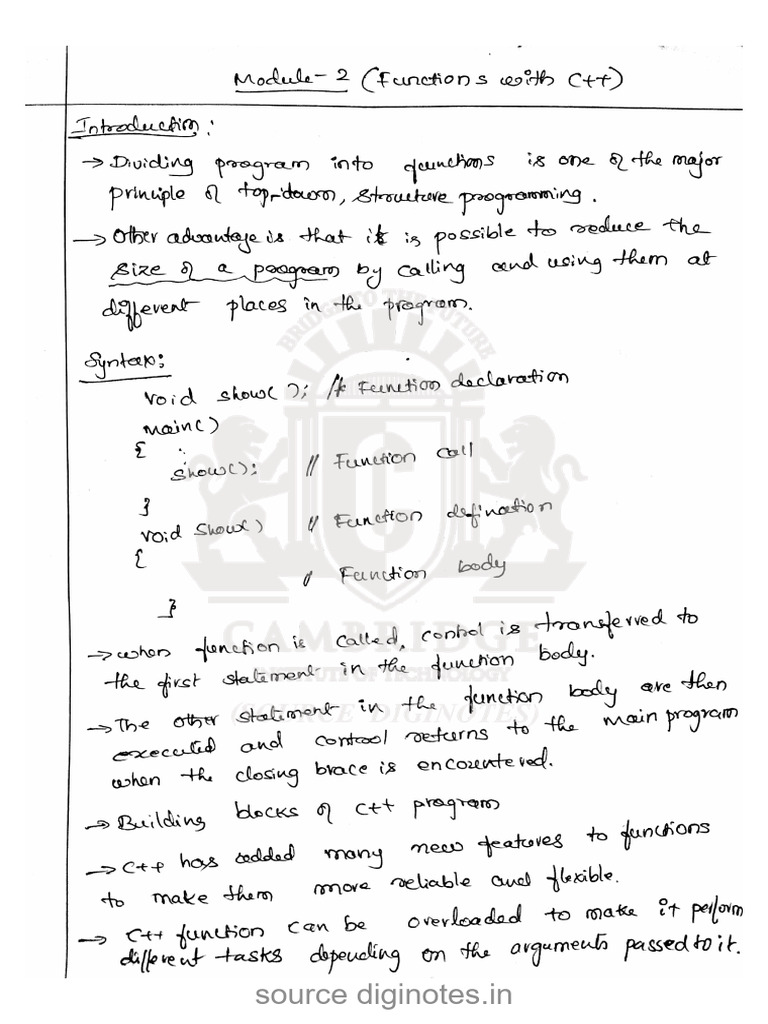 Module-2 (Functions with C++)
Introduction:
→ Dividing program into functions is one of the major
principle of top-down, structure programming.
→ Other advantage is that it is possible to reduce the
size of a program by calling and using them at
different places in the program.
Syntax:
void show( ); // Function declaration
main()
{
show(); // Function call
}
void show() // Function defination
{
// Function body
}
→ when function is called, control is transferred to
the first statement in the function body.
→ The other statement in the function body are then
executed and control returns to the main program
when the closing brace is encountered.
→ Building blocks of C++ program
→ C++ has added many new features to functions
to make them more reliable and flexible.
→ C++ function can be overloaded to make it perform
different tasks depending on the arguments passed to it.
BRIDGE TO THE FUTURE
CAMBRIDGE
INSTITUTE OF TECHNOLOGY
(SOURCE DIGINOTES)
source diginotes.in